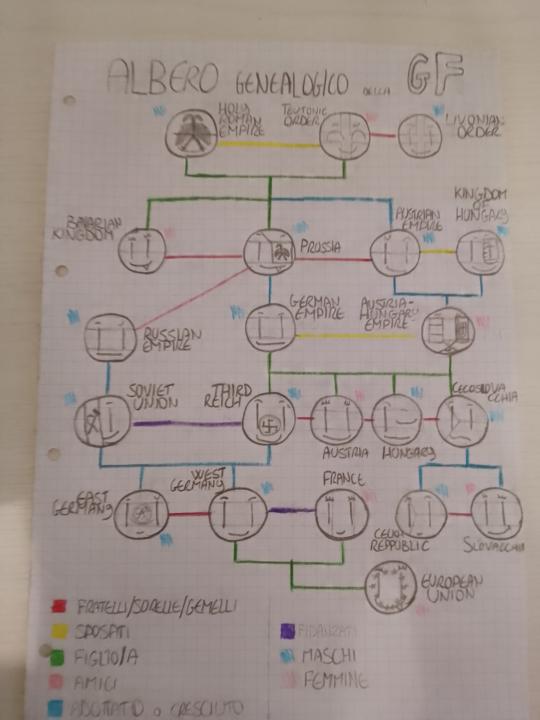 ALBERO GENEALOGICO DELLA GF
HOLY
ROMAN
EMPIRE
TEUTONIC
ORDER
LIVONIAN
ORDER
BAVARIAN
KINGDOM
PRUSSIA
AUSTRIAN
EMPIRE
KINGDOM
OF
HUNGARY
RUSSIAN
EMPIRE
GERMAN
EMPIRE
AUSTRIA-
HUNGARY
EMPIRE
SOVIET
UNION
THIRD
REICH
AUSTRIA
HUNGARY
CECOSLOVA
CCHIA
EAST
GERMANY
WEST
GERMANY
FRANCE
REPPUBLIC
SLOVACCHIA
EUROPEAN
UNION
FRATELLI/SORELLE/GEMELLI
SPOSATI
FIGLIO/A
AMICI
ADOTTATO O CRESCIUTO
FIDANZATI
MASCHI
FEMMINE